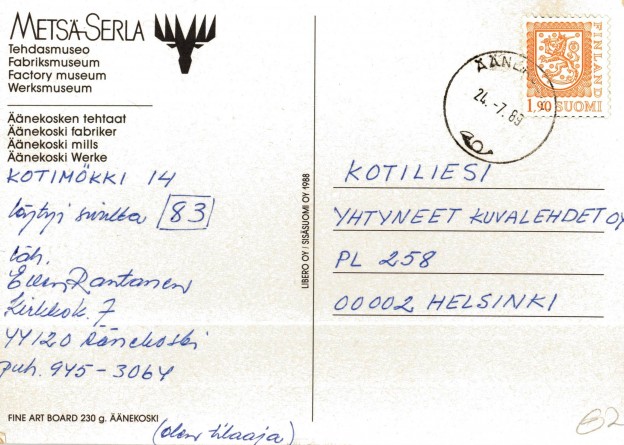 METSÄ-SERLA
Tehdasmuseo
Fabriksmuseum
Factory museum
Werksmuseum
Äänekosken tehtaat
Äänekoski fabriker
Äänekoski mills
Äänekoski Werke
KOTIMÖKKI 14
löytyi sivulta 83
läh.
Eila Rantanen
Kirkkok. 7
44120 Äänekoski
puh. 945-3064
(olen tilaaja)
FINE ART BOARD 230 g. ÄÄNEKOSKI
LIBERO OY / SISÄSUOMI OY 1988
FINLAND
1,90 SUOMI
24.-7.89
KOTILIESI
YHTYNEET KUVALEHDET OY
PL 258
00002 HELSINKI